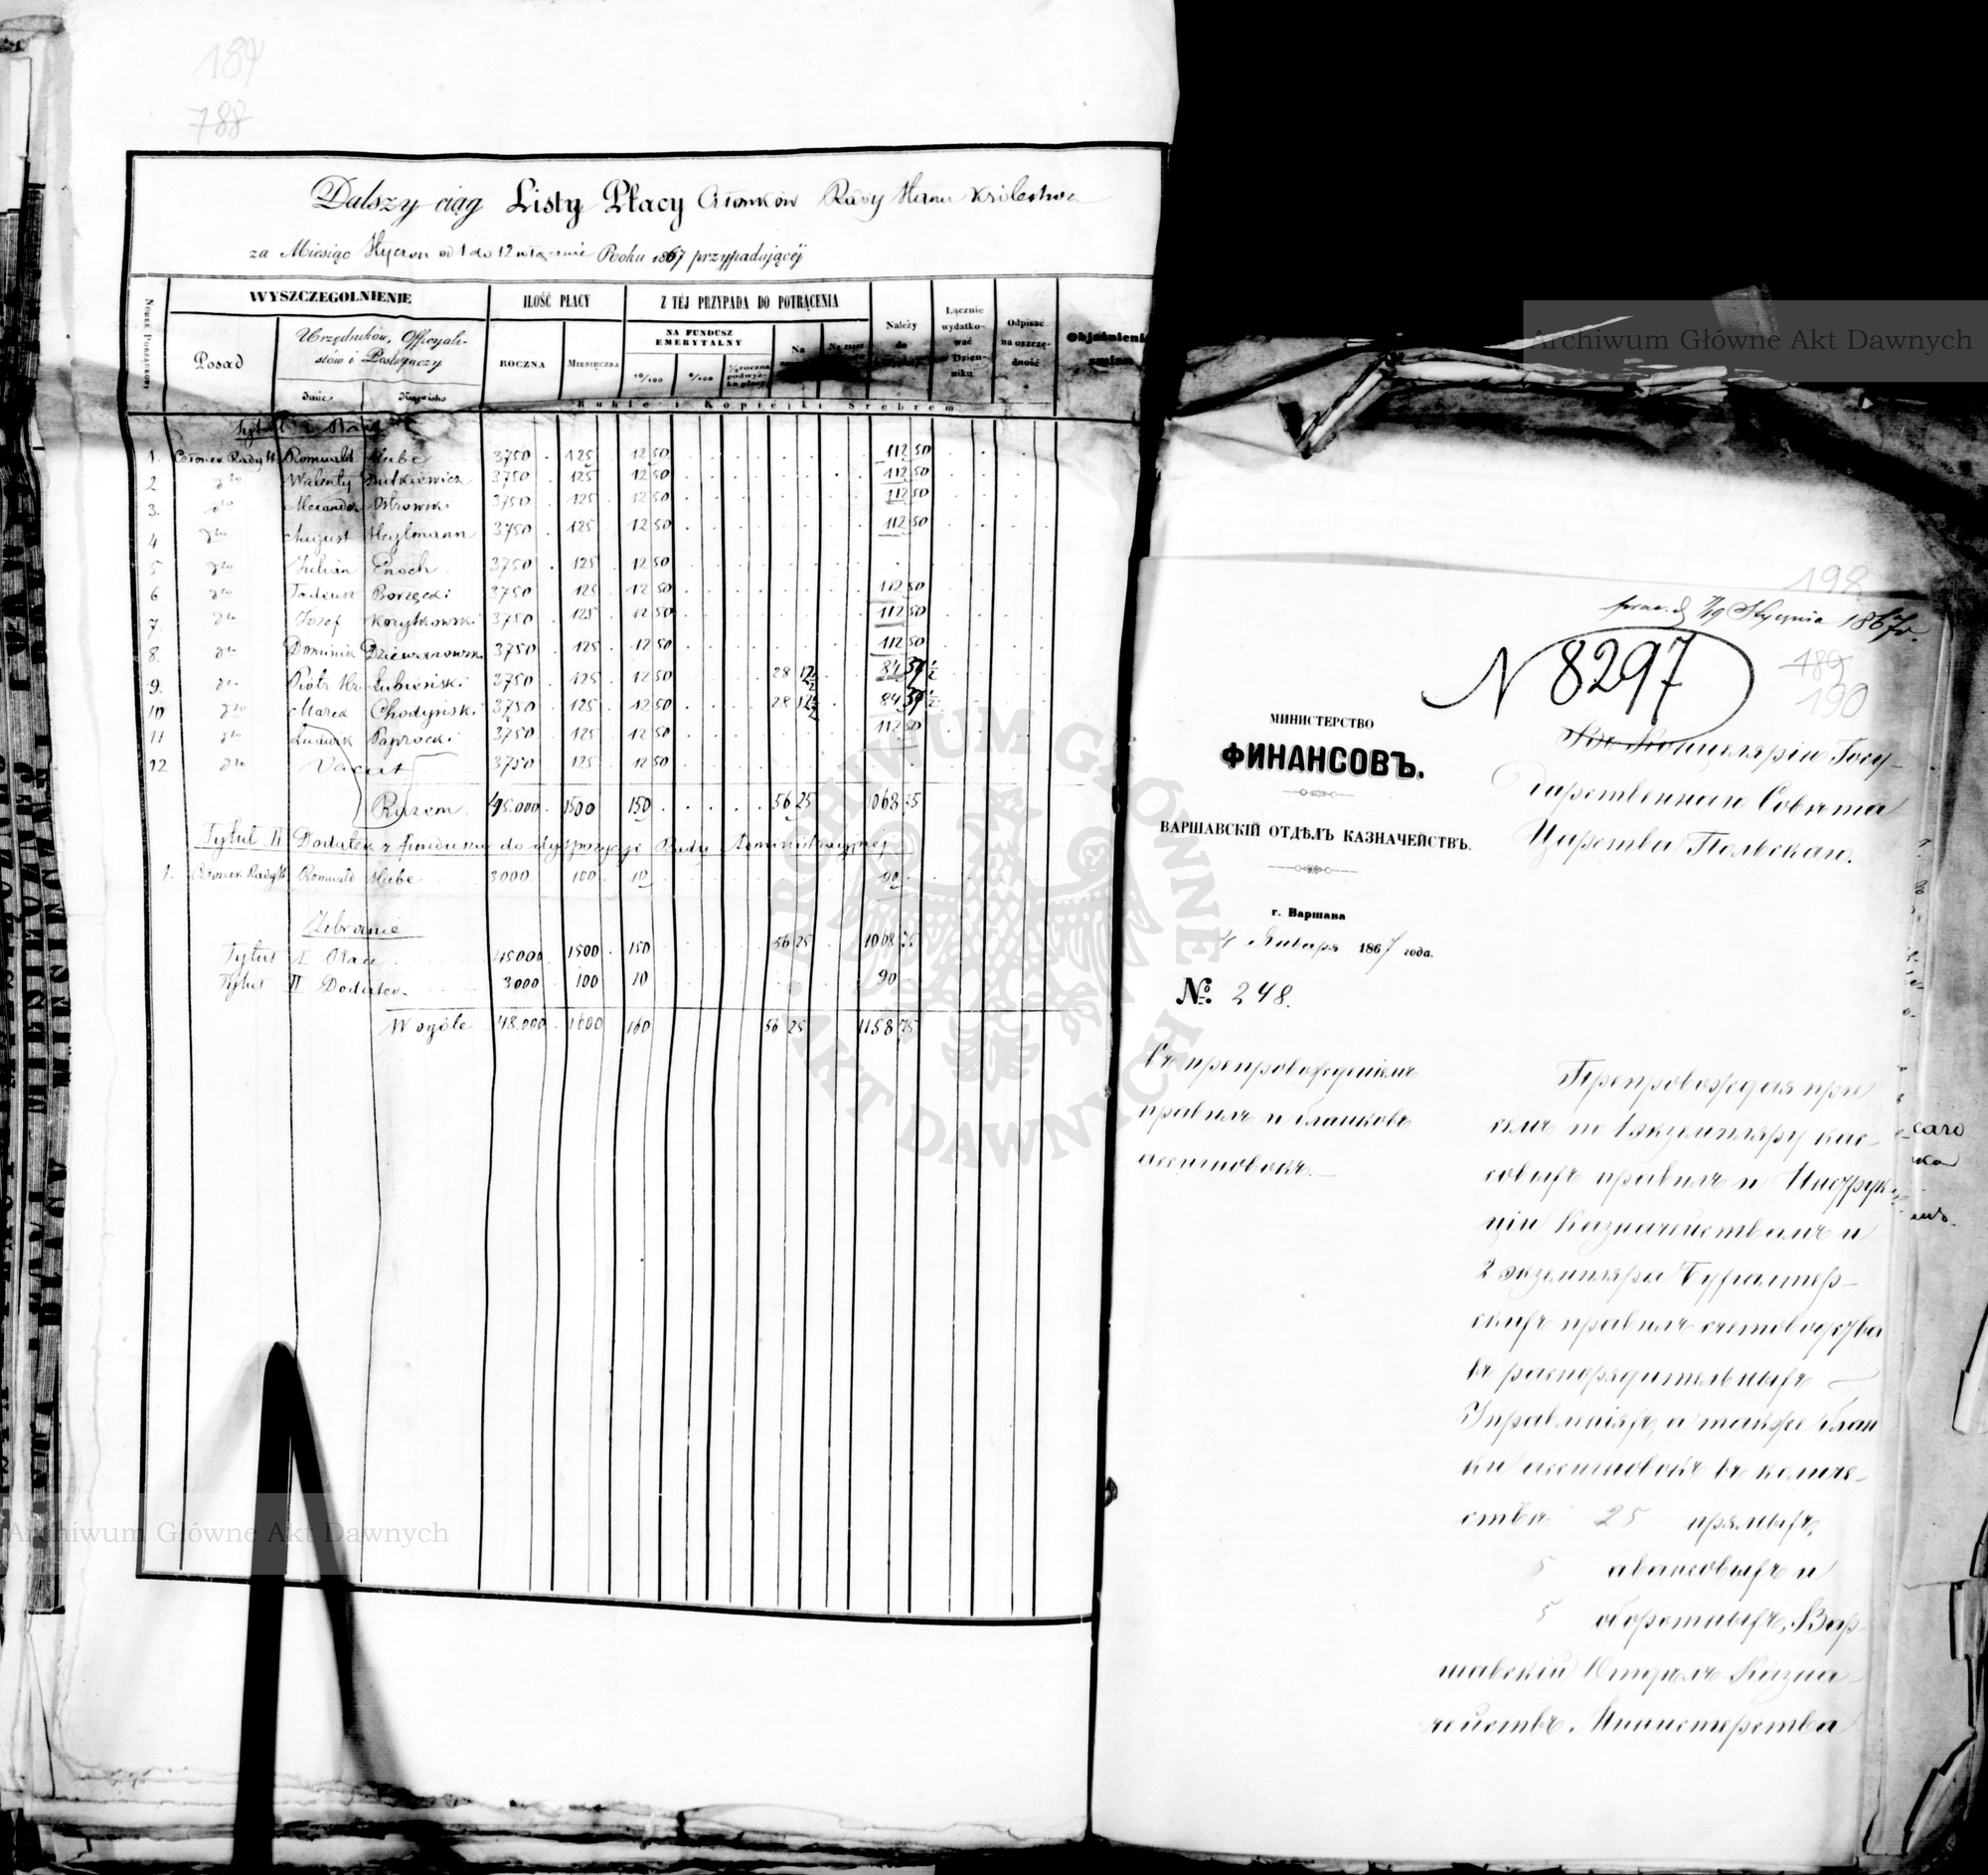 184
788
Dalszy ciąg Listy Płacy Członków Rady Stanu Królestwa
za Miesiąc Styczeń od 1 do 12 włącznie Roku 1867 przypadającéj
NUMER PORZĄDKOWY
WYSZCZEGOLNIENIE
ILOŚĆ PŁACY
Z TÉJ PRZYPADA DO POTRĄCENIA
Posad
Urzędników, Officyali-
stów i Posługaczy
Imie
Nazwisko
ROCZNA
MIESIĘCZNA
NA FUNDUSZ
EMERYTALNY
Na
Należy
do
Łącznie
wydatko-
wać
w Dzien-
niku
Odpisać
na oszczę-
dność
Objaśnienie
zmian
Ruble i Kopiejki Srebrem
Tytuł I Płace
1. Członek Rady St. Romuald Hube 3750 125 12 50 112 50
2 dto Walenty Dutkiewicz 3750 125 12 50 112 50
3. dto Alexander Ostrowski 3750 125 12 50 112 50
4 dto August Heylmann 3750 125 12 50 112 50
5 dto Julian Enoch 3750 125 12 50
6 dto Tadeusz Borzęcki 3750 125 12 50 112 50
7. dto Józef Korytkowski 3750 125 12 50 112 50
8. dto Dominik Dziewanowski 3750 125 12 50 112 50
9. dto Piotr Hr. Łubieński 3750 125 12 50 28 12½ 84 37½
10 dto Marek Chodyński 3750 125 12 50 28 12½ 84 37½
11 dto Ludwik Paprocki 3750 125 12 50 112 50
12 dto Vacat 3750 125 12 50
Razem 45.000 1500 150 56 25 1068 75
Tytuł II Dodatek z funduszu do dyspozycyi Rady Administracyjnej
1. Członek Rady St. Romuald Hube 3000 100 10 90
Zebranie
Tytuł I Płace 45000 1500 150 56 25 1068 75
Tytuł II Dodatek 3000 100 10 90
W ogóle 48.000 1600 160 56 25 1158 75
198
7/19 Stycznia 1867 r.
N 8297
189
190
МИНИСТЕРСТВО
ФИНАНСОВЪ.
ВАРШАВСКІЙ ОТДѢЛЪ КАЗНАЧЕЙСТВЪ.
г. Варшава
4 Января 1867 года.
№. 248.
Съ препровожденіемъ
правилъ и бланковъ
ассигновокъ.
Въ Канцелярію Госу-
дарственнаго Совѣта
Царства Польскаго.
Препровождая при
семъ по 1 экземпляру кас-
совыхъ правилъ и Инструк-
ціи Казначействамъ и
2 экземпляра Бухгалтер-
скихъ правилъ счетоводства
въ распорядительныхъ
Управленіяхъ, а также блан
ки ассигновокъ въ количе-
ствѣ 25 прямыхъ,
5 авансовыхъ и
5 оборотныхъ, Вар-
шавскій Отдѣлъ Казна-
чействъ. Министерства
Archiwum Główne Akt Dawnych
Archiwum Główne Akt Dawnych
ARCHIWUM GŁÓWNE AKT DAWNYCH